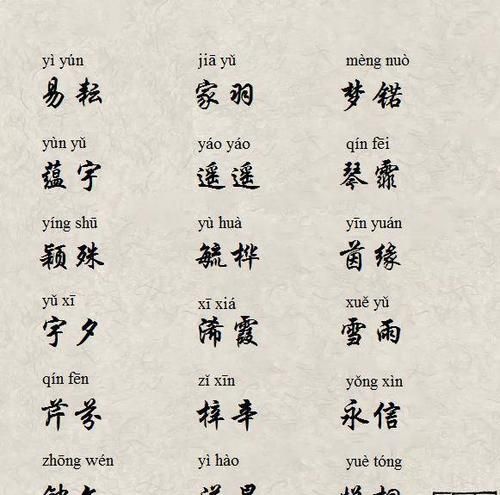 yì yún jiā yǔ mèng nuò
易耘 家羽 梦锘
yùn yǔ yáo yáo qín fēi
蕴宇 遥遥 琴霏
yíng shū yù huà yīn yuán
颖殊 毓桦 茵缘
yǔ xī xī xiá xuě yǔ
宇夕 浠霞 雪雨
qín fēn zǐ xīn yǒng xìn
芹芬 梓辛 永信
zhōng wén yì hào yuè tóng